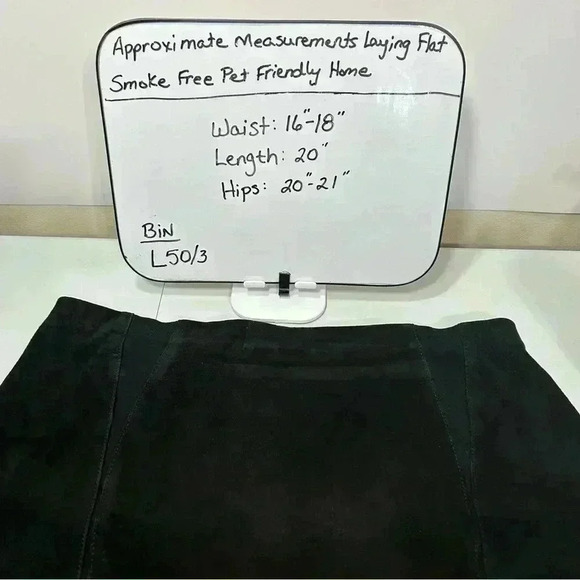 Approximate Measurements Laying Flat
Smoke Free Pet Friendly Home
Waist: 16"-18"
Length: 20"
Hips: 20"-21"
BiN
L50/3